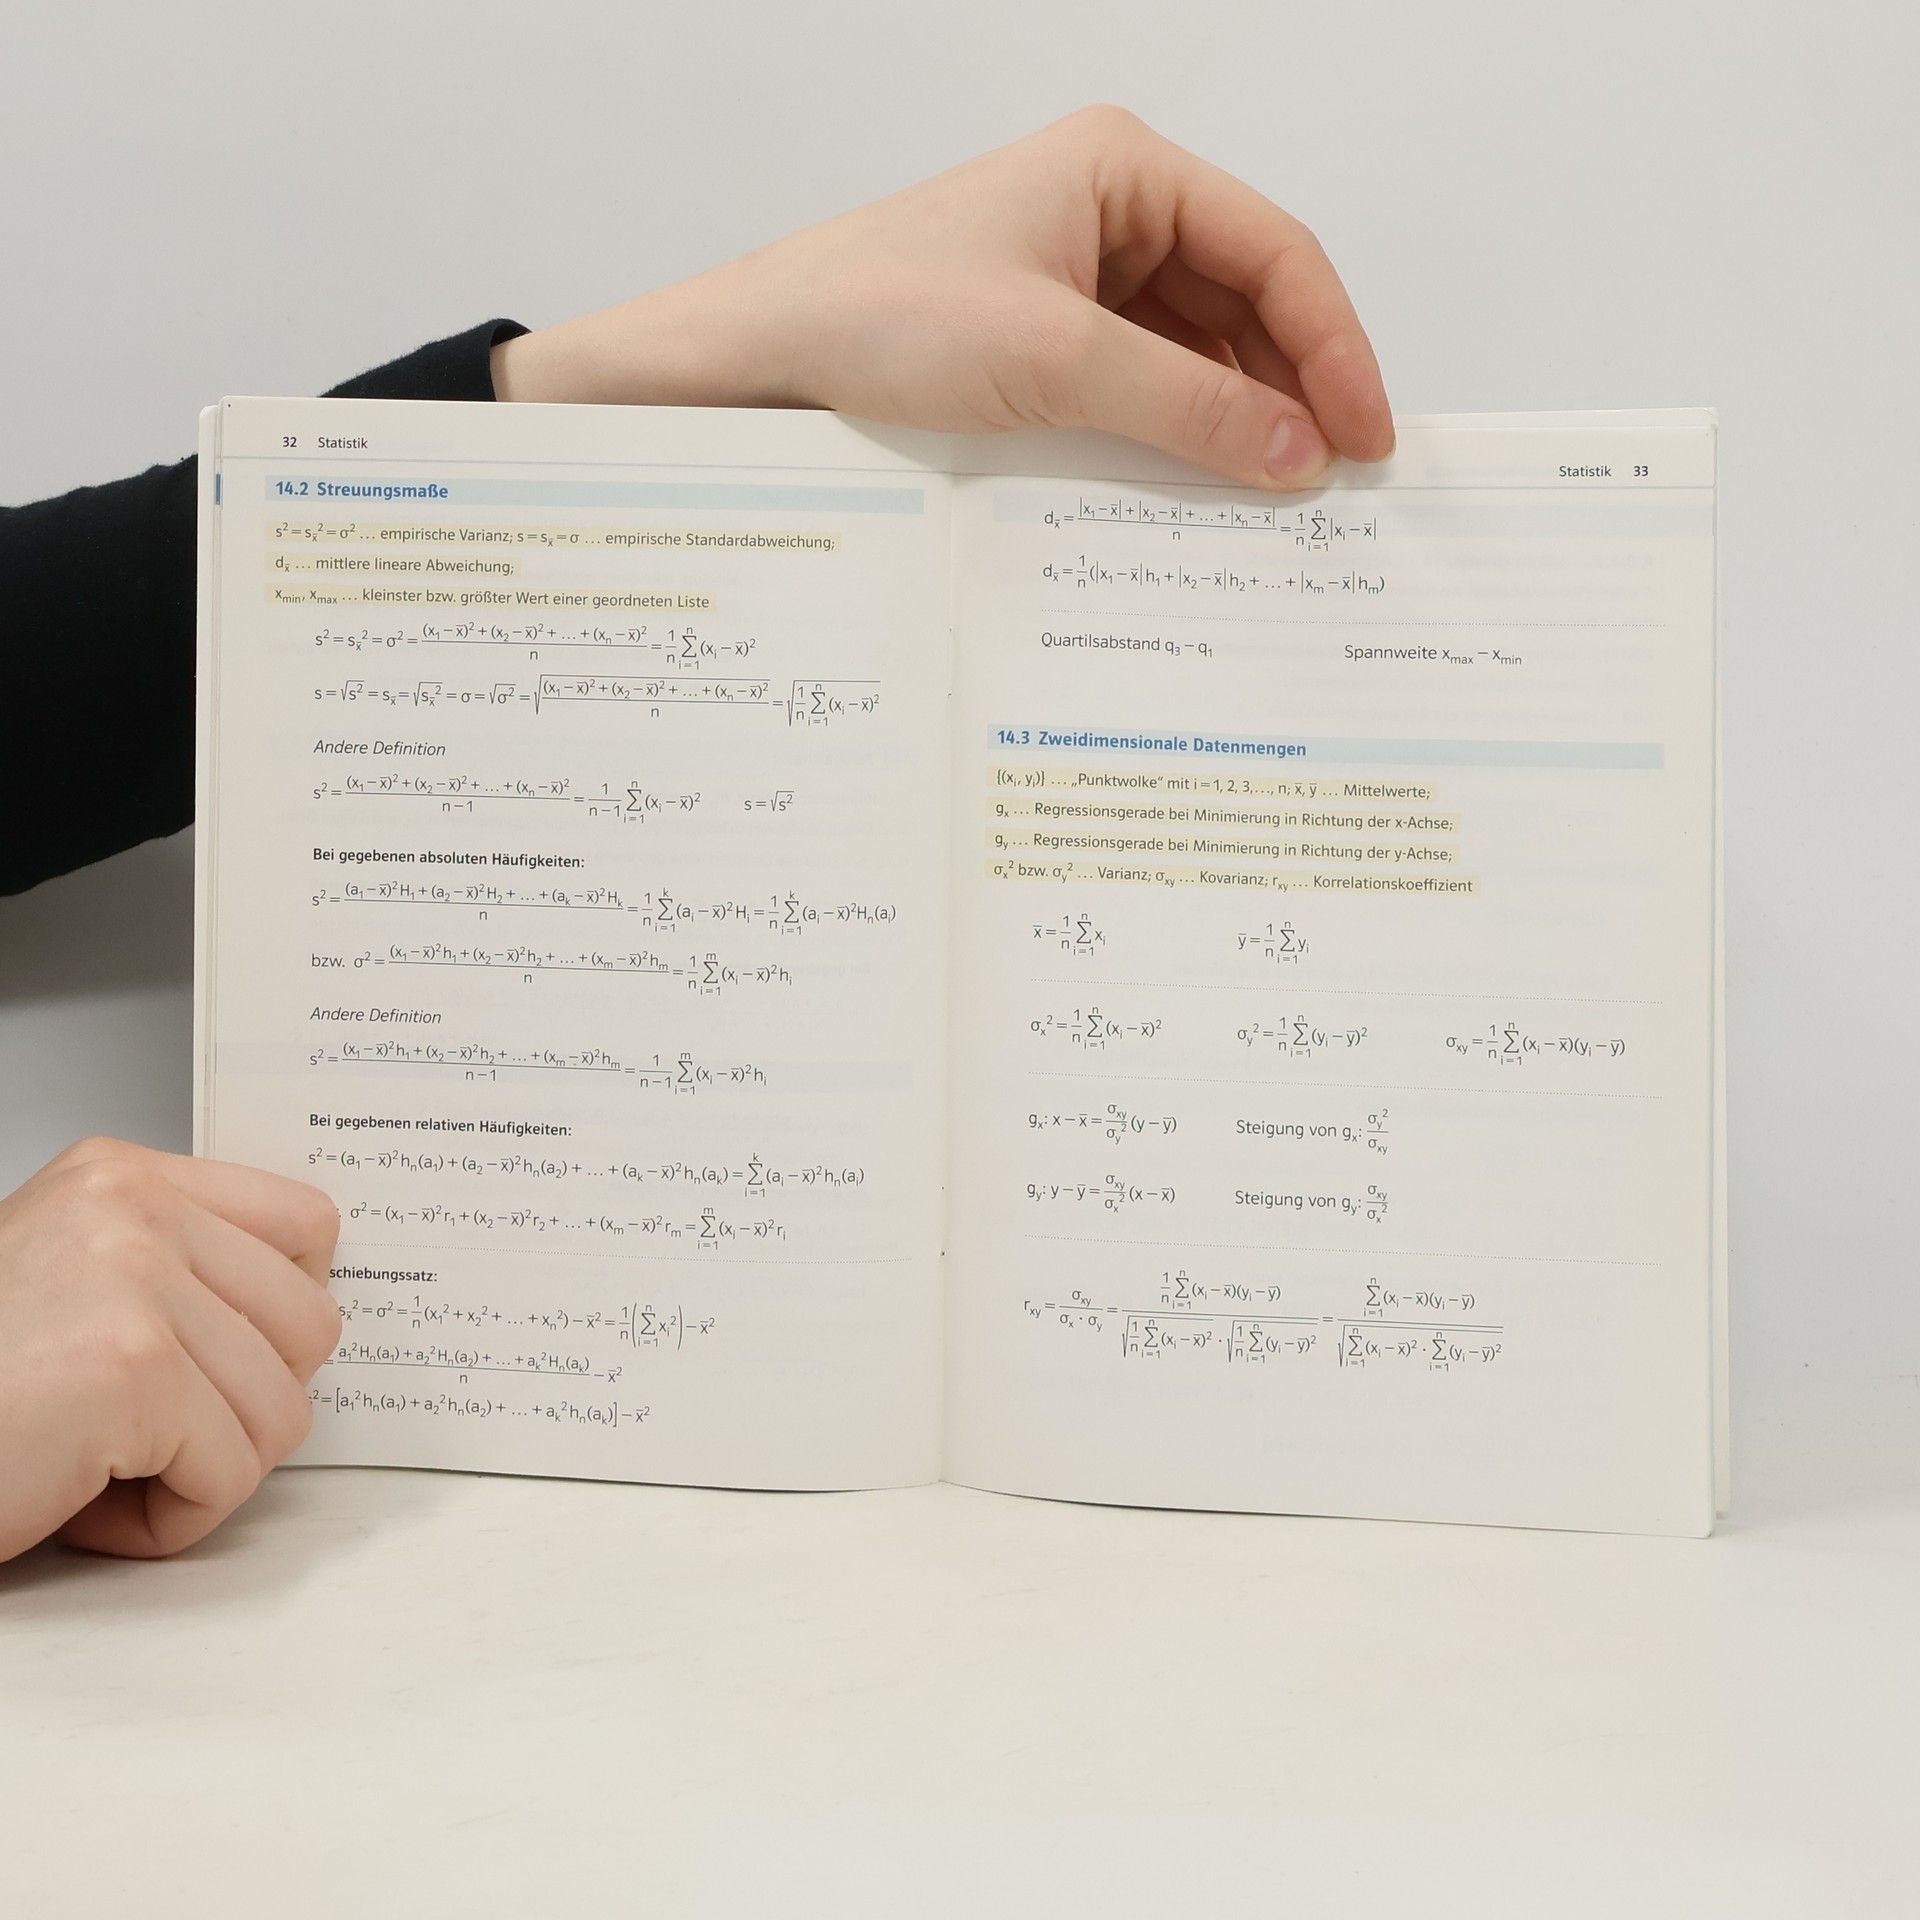 32 Statistik
14.2 Streuungsmaße
s² = s_x̄² = σ² … empirische Varianz; s = s_x̄ = σ … empirische Standardabweichung;
d_x̄ … mittlere lineare Abweichung;
x_min, x_max … kleinster bzw. größter Wert einer geordneten Liste
s² = s_x̄² = σ² = ((x₁ − x̄)² + (x₂ − x̄)² + … + (xₙ − x̄)²)/n = 1/n ∑_{i=1}^{n} (x_i − x̄)²
s = √s² = s_x̄ = √(s_x̄²) = σ = √σ² = √(((x₁ − x̄)² + (x₂ − x̄)² + … + (xₙ − x̄)²)/n) = √(1/n ∑_{i=1}^{n} (x_i − x̄)²)
Andere Definition
s² = ((x₁ − x̄)² + (x₂ − x̄)² + … + (xₙ − x̄)²)/(n−1) = 1/(n−1) ∑_{i=1}^{n} (x_i − x̄)² s = √s²
Bei gegebenen absoluten Häufigkeiten:
s² = ((a₁ − x̄)² H₁ + (a₂ − x̄)² H₂ + … + (a_k − x̄)² H_k)/n = 1/n ∑_{i=1}^{k} (a_i − x̄)² H_i = 1/n ∑_{i=1}^{k} (a_i − x̄)² Hₙ(a_i)
bzw. σ² = ((x₁ − x̄)² h₁ + (x₂ − x̄)² h₂ + … + (x_m − x̄)² h_m)/n = 1/n ∑_{i=1}^{m} (x_i − x̄)² h_i
Andere Definition
s² = ((x₁ − x̄)² h₁ + (x₂ − x̄)² h₂ + … + (x_m − x̄)² h_m)/(n−1) = 1/(n−1) ∑_{i=1}^{m} (x_i − x̄)² h_i
Bei gegebenen relativen Häufigkeiten:
s² = (a₁ − x̄)² hₙ(a₁) + (a₂ − x̄)² hₙ(a₂) + … + (a_k − x̄)² hₙ(a_k) = ∑_{i=1}^{k} (a_i − x̄)² hₙ(a_i)
σ² = (x₁ − x̄)² r₁ + (x₂ − x̄)² r₂ + … + (x_m − x̄)² r_m = ∑_{i=1}^{m} (x_i − x̄)² r_i
schiebungssatz:
s_x̄² = σ² = 1/n (x₁² + x₂² + … + xₙ²) − x̄² = 1/n (∑_{i=1}^{n} x_i²) − x̄²
= (a₁² Hₙ(a₁) + a₂² Hₙ(a₂) + … + a_k² Hₙ(a_k))/n − x̄²
² = [a₁² hₙ(a₁) + a₂² hₙ(a₂) + … + a_k² hₙ(a_k)] − x̄²
Statistik 33
d_x̄ = (|x₁ − x̄| + |x₂ − x̄| + … + |xₙ − x̄|)/n = 1/n ∑_{i=1}^{n} |x_i − x̄|
d_x̄ = 1/n (|x₁ − x̄| h₁ + |x₂ − x̄| h₂ + … + |x_m − x̄| h_m)
Quartilsabstand q₃ − q₁ Spannweite x_max − x_min
14.3 Zweidimensionale Datenmengen
{(x_i, y_i)} … „Punktwolke“ mit i = 1, 2, 3,…, n; x̄, ȳ … Mittelwerte;
g_x … Regressionsgerade bei Minimierung in Richtung der x-Achse;
g_y … Regressionsgerade bei Minimierung in Richtung der y-Achse;
σ_x² bzw. σ_y² … Varianz; σ_xy … Kovarianz; r_xy … Korrelationskoeffizient
x̄ = 1/n ∑_{i=1}^{n} x_i ȳ = 1/n ∑_{i=1}^{n} y_i
σ_x² = 1/n ∑_{i=1}^{n} (x_i − x̄)² σ_y² = 1/n ∑_{i=1}^{n} (y_i − ȳ)² σ_xy = 1/n ∑_{i=1}^{n} (x_i − x̄)(y_i − ȳ)
g_x: x − x̄ = σ_xy/σ_y² (y − ȳ) Steigung von g_x: σ_y²/σ_xy
g_y: y − ȳ = σ_xy/σ_x² (x − x̄) Steigung von g_y: σ_xy/σ_x²
r_xy = σ_xy/(σ_x · σ_y) = (1/n ∑_{i=1}^{n} (x_i − x̄)(y_i − ȳ))/(√(1/n ∑_{i=1}^{n} (x_i − x̄)²) · √(1/n ∑_{i=1}^{n} (y_i − ȳ)²)) = (∑_{i=1}^{n} (x_i − x̄)(y_i − ȳ))/√(∑_{i=1}^{n} (x_i − x̄)² · ∑_{i=1}^{n} (y_i − ȳ)²)